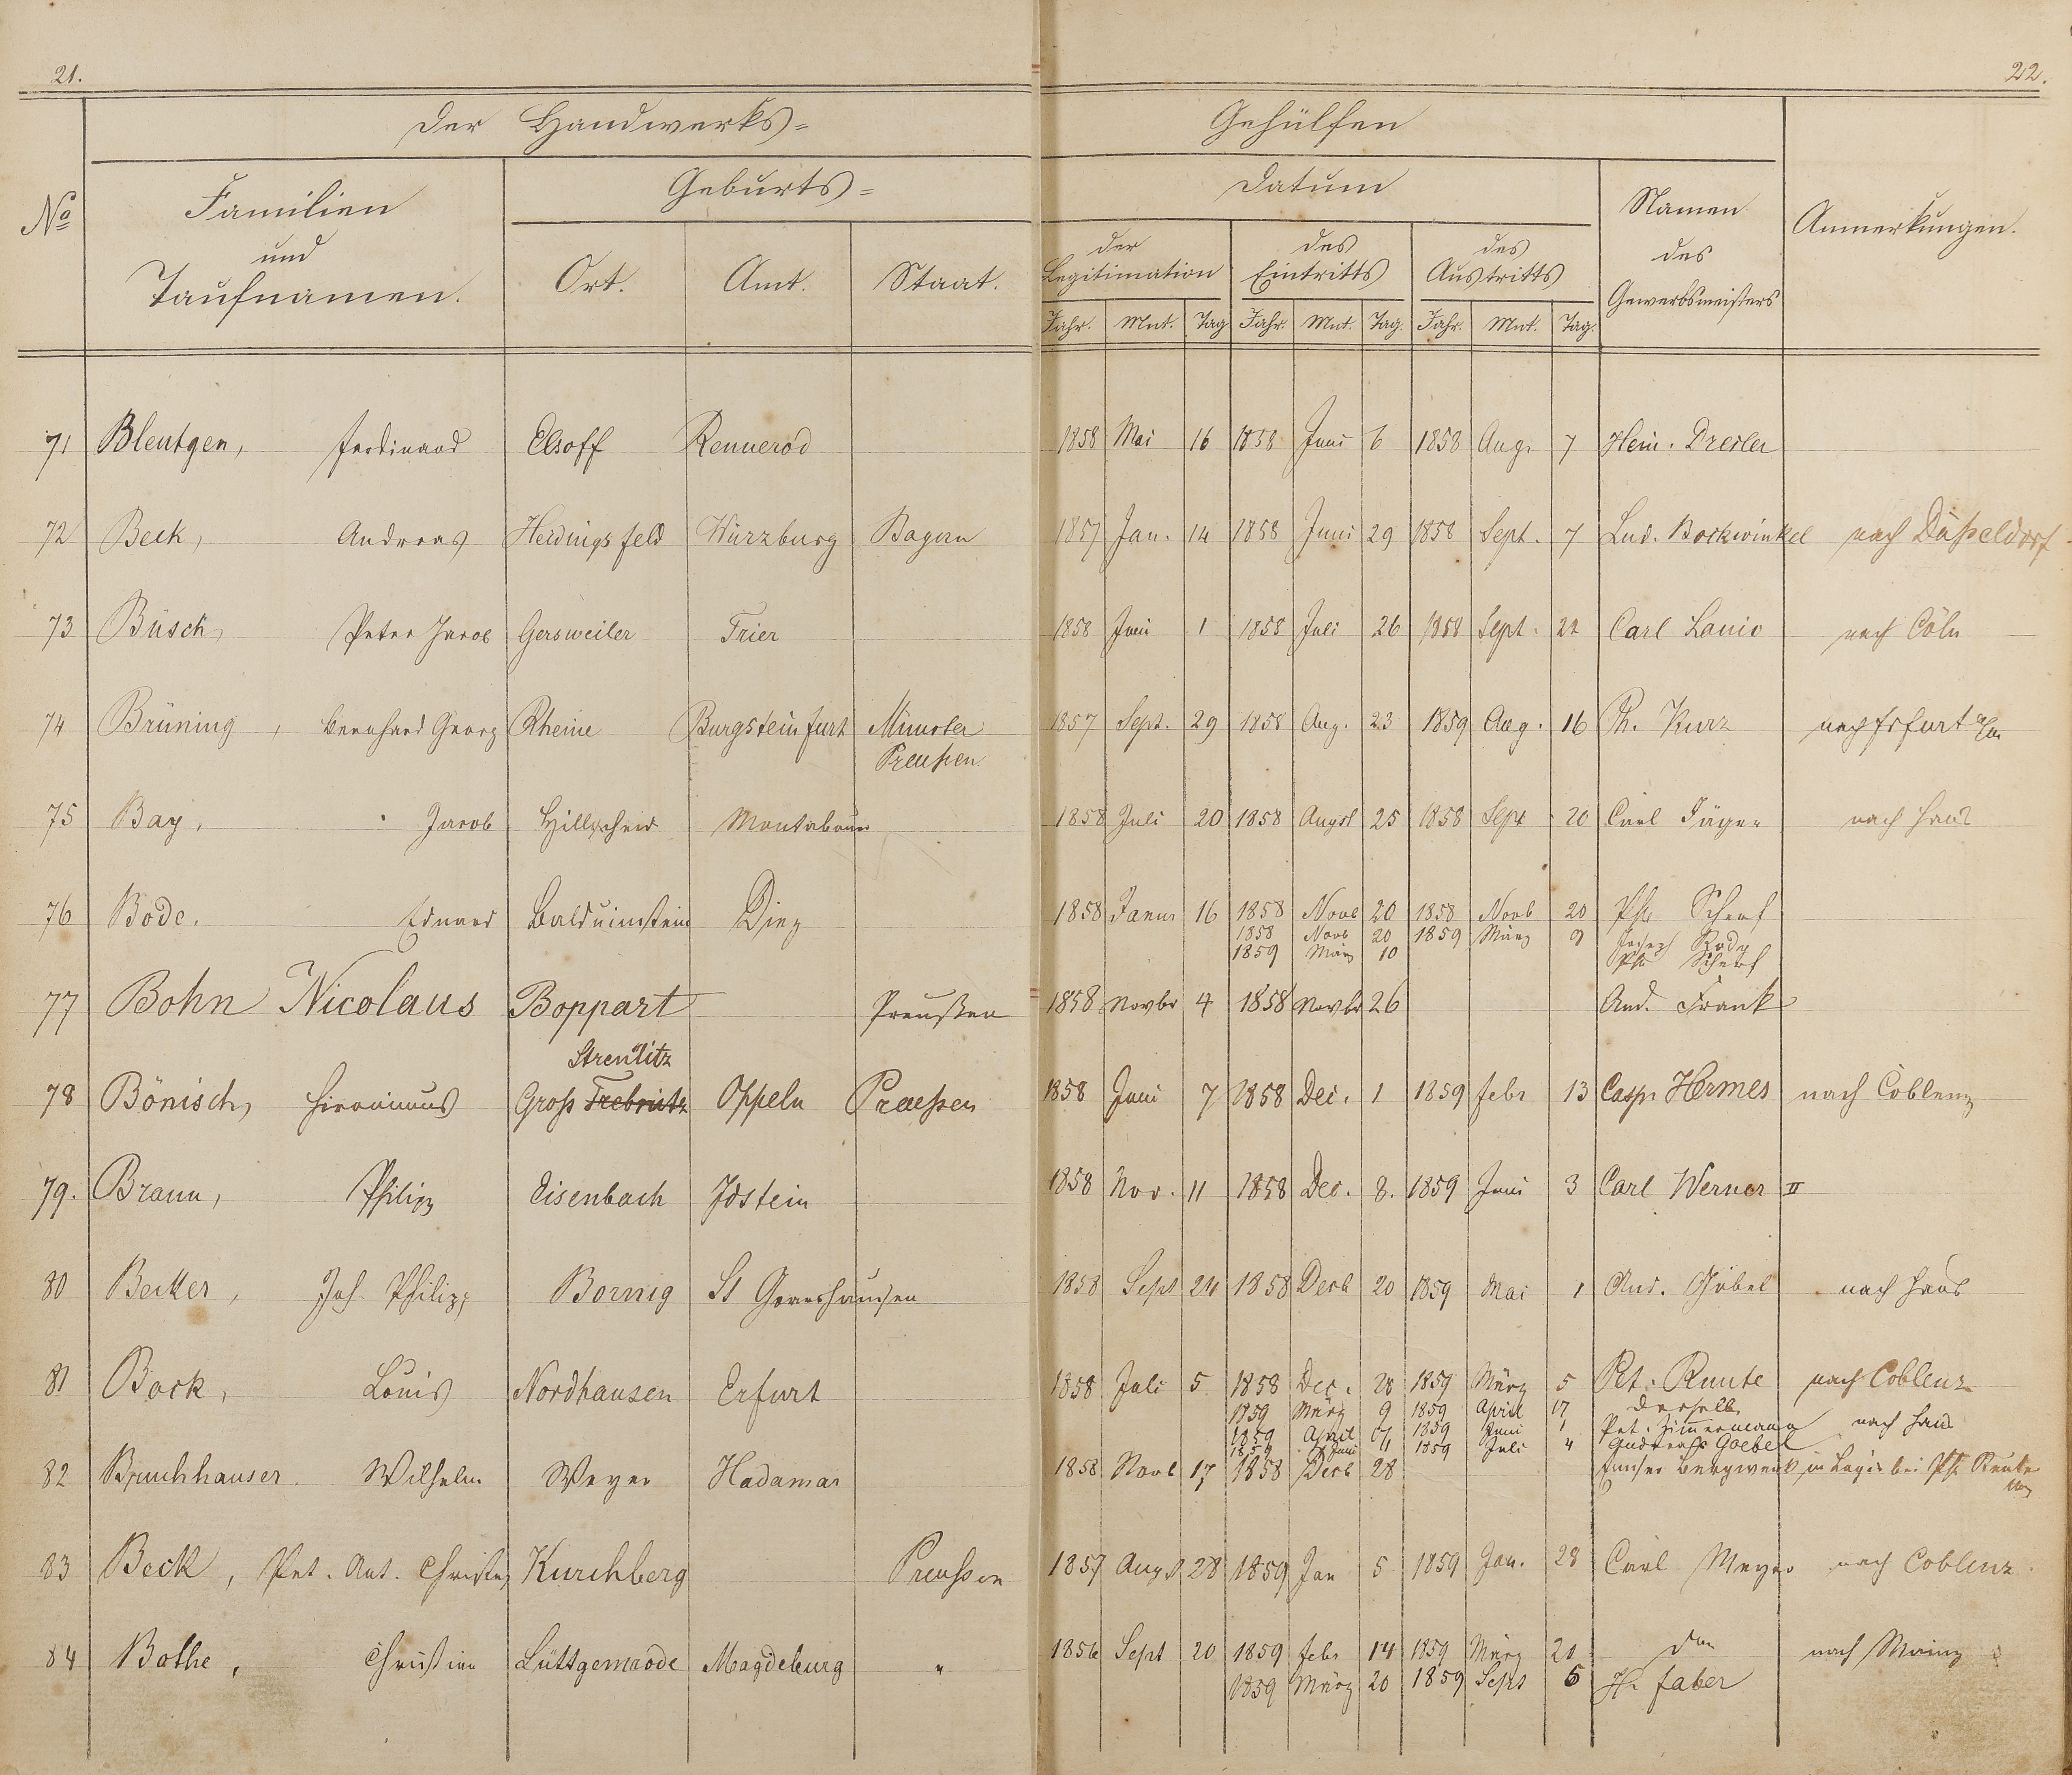 21.
22.
Der Handwerks=
Gehülfen
No
Familien
und
Taufnamen.
Geburts=
Ort.
Amt.
Staat.
Datum
der
Legitimation
des
Eintritts
des
Austritts
Jahr. Mnt. Tag Jahr. Mnt. Tag. Jahr. Mnt. Tag.
Namen
des
Gewerbsmeisters
Anmerkungen.
71 Bleutgen, Ferdinand Elsoff Rennerod 1858 Mai 16 1858 Juni 6 1858 Aug. 7 Hein. Dresler
72 Beck, Andreas Heidingsfeld Würzburg Bayern 1857 Jan. 14 1858 Juni 29 1858 Sept. 7 Lud. Bockwinkel nach Düßeldorf
73 Büsch, Peter Jacob Gersweiler Trier 1858 Juni 1 1858 Juli 26 1858 Sept. 22 Carl Lanio nach Cöln
74 Brüning, Bernhard Georg Rheine Burgsteinfurt Münster 1857 Sept. 29 1858 Aug. 23 1859 Aug. 16 Ph. Kurz nach Frfurt a/m
Preußen
75 Bay, Jacob Hillscheid Montabaur 1858 Juli 20 1858 Augst 25 1858 Sept 20 Carl Jäger nach Haus
76 Bode. Eduard Balduinstein Diez 1858 Janur 16 1858 Novb 20 1858 Novb 20 Ph. Scherf
1858 Novb 20 1859 März 9 Joseph Body
1859 März 10 Ph Scherf
77 Bohn Nicolaus Boppart Preußen 1858 Novbr 4 1858 Novbr 26 And. Frank
Strenlitz
78 Bönisch, Hironimus Groß Trebnitz Oppeln Preußen 1858 Juni 7 1858 Dec. 1 1859 Febr 13 Casp. Hermes nach Coblenz
79. Braun, Philipp Eisenbach Idstein 1858 Nov. 11 1858 Dec. 8. 1859 Juni 3 Carl Werner II
80 Becker, Joh. Philipp Bornig St Goarshausen 1858 Sept 24 1858 Decb 20 1859 Mai 1 And. Göbel nach Haus
81 Bock, Louis Nordhausen Erfurt 1858 Juli 5 1858 Dec. 28 1859 März 5 Pt. Ruute nach Coblenz
1859 März 9 1859 April 17 Derselbe
1859 April 17 1859 Juni 1 Pet. Zimermann nach Haus
1859 Juni 1859 Juli 4 Andreas Goebel
82 Bruchhauser Wilhelm Weyer Hadamar 1858 Novb 17 1858 Decb 28 Emser Bergwerk in Logis bei
83 Beck, Pet. Ant. Christ. Kirchberg Preußen 1857 Augst 28 1859 Jan 5 1859 Jan. 28 Carl Meyer nach Coblenz.
84 Bothe, Christian Lüttgenrode Magdeburg " 1856 Sept 20 1859 Febr 14 1859 März 20 nach Mainz
1859 März 20 1859 Sept 6 H. Faber